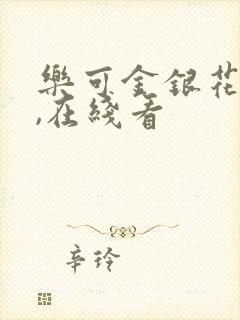 樂可金銀花
,在綫看
辛玲